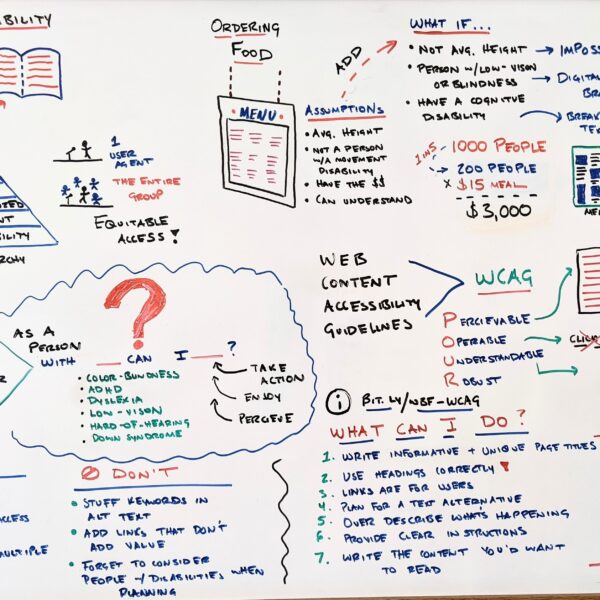 BILITY
1
USER
AGENT
THE ENTIRE
GROUP
EQUITABLE
ACCESS!
BILITY
ORDERING
FOOD
MENU
ADD
ASSUMPTIONS
• AVG. HEIGHT
• NOT A PERSON
W/A MOVEMENT
DISABILITY
• HAVE THE $$
• CAN UNDERSTAND
WHAT IF...
• NOT AVG. HEIGHT → IMPOSS
• PERSON W/LOW-VISON
OR BLINDNESS → DIGITAL
BRA
• HAVE A COGNITIVE
DISABILITY → BREAK
TEX
1 IN 5
1000 PEOPLE
200 PEOPLE
x $15 MEAL
$3,000
ME
AS A
PERSON
WITH ___ CAN I ___?
• COLOR-BLINDNESS
• ADHD
• DYSLEXIA
• LOW-VISON
• HARD-OF-HEARING
• DOWN SYNDROME
TAKE
ACTION
ENJOY
PERCIEVE
WEB
CONTENT
ACCESSIBILITY
GUIDELINES
WCAG
PERCIEVABLE
OPERABLE
UNDERSTANDABLE
ROBUST
CLICK
i BIT.LY/NBF-WCAG
WHAT CAN I DO?
1. WRITE INFORMATIVE + UNIQUE PAGE TITLES
2. USE HEADINGS CORRECTLY
3. LINKS ARE FOR USERS
4. PLAN FOR A TEXT ALTERNATIVE
5. OVER DESCRIBE WHAT'S HAPPENING
6. PROVIDE CLEAR INSTRUCTIONS
7. WRITE THE CONTENT YOU'D WANT
TO READ
DON'T
• STUFF KEYWORDS IN
ALT TEXT
• ADD LINKS THAT DON'T
ADD VALUE
• FORGET TO CONSIDER
PEOPLE W/DISABILITIES WHEN
PLANNING
CCESS
ULTIPLE